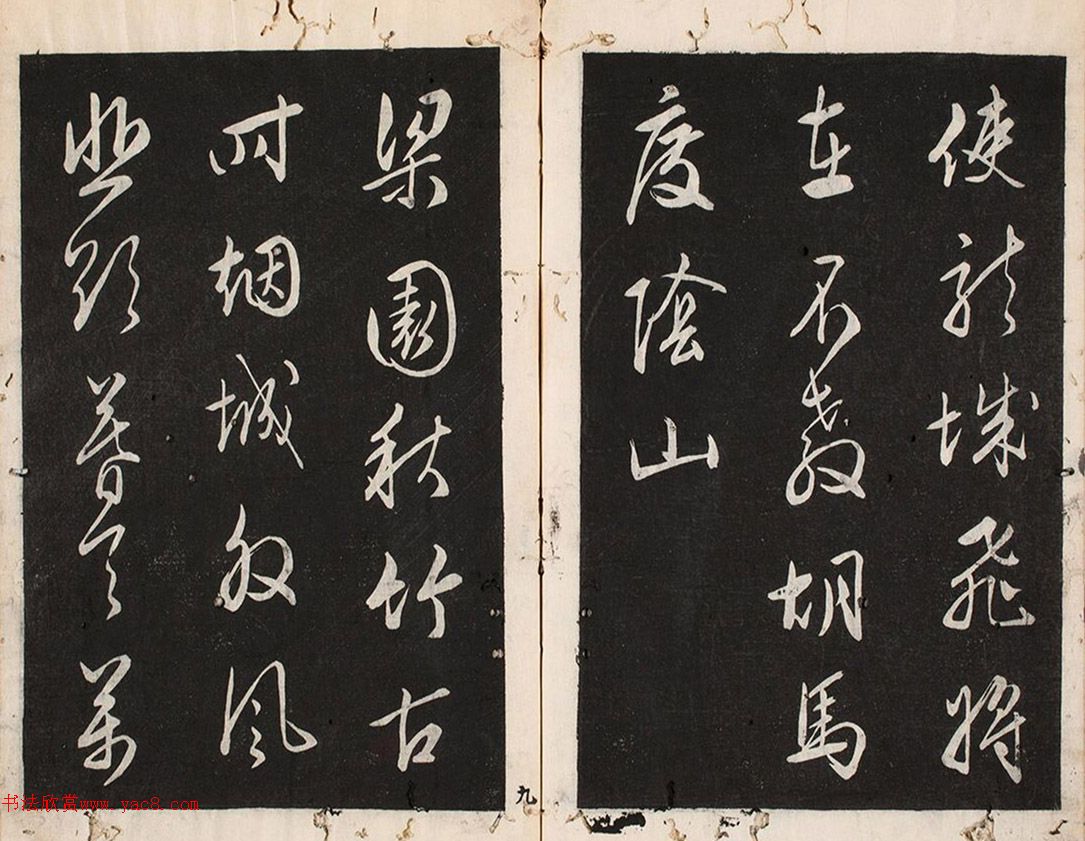 使龍城飛將
在不教胡馬
度陰山
梁園秋竹古
時烟城外風
悲欲暮天萬
九
书法欣赏www.yac8.com